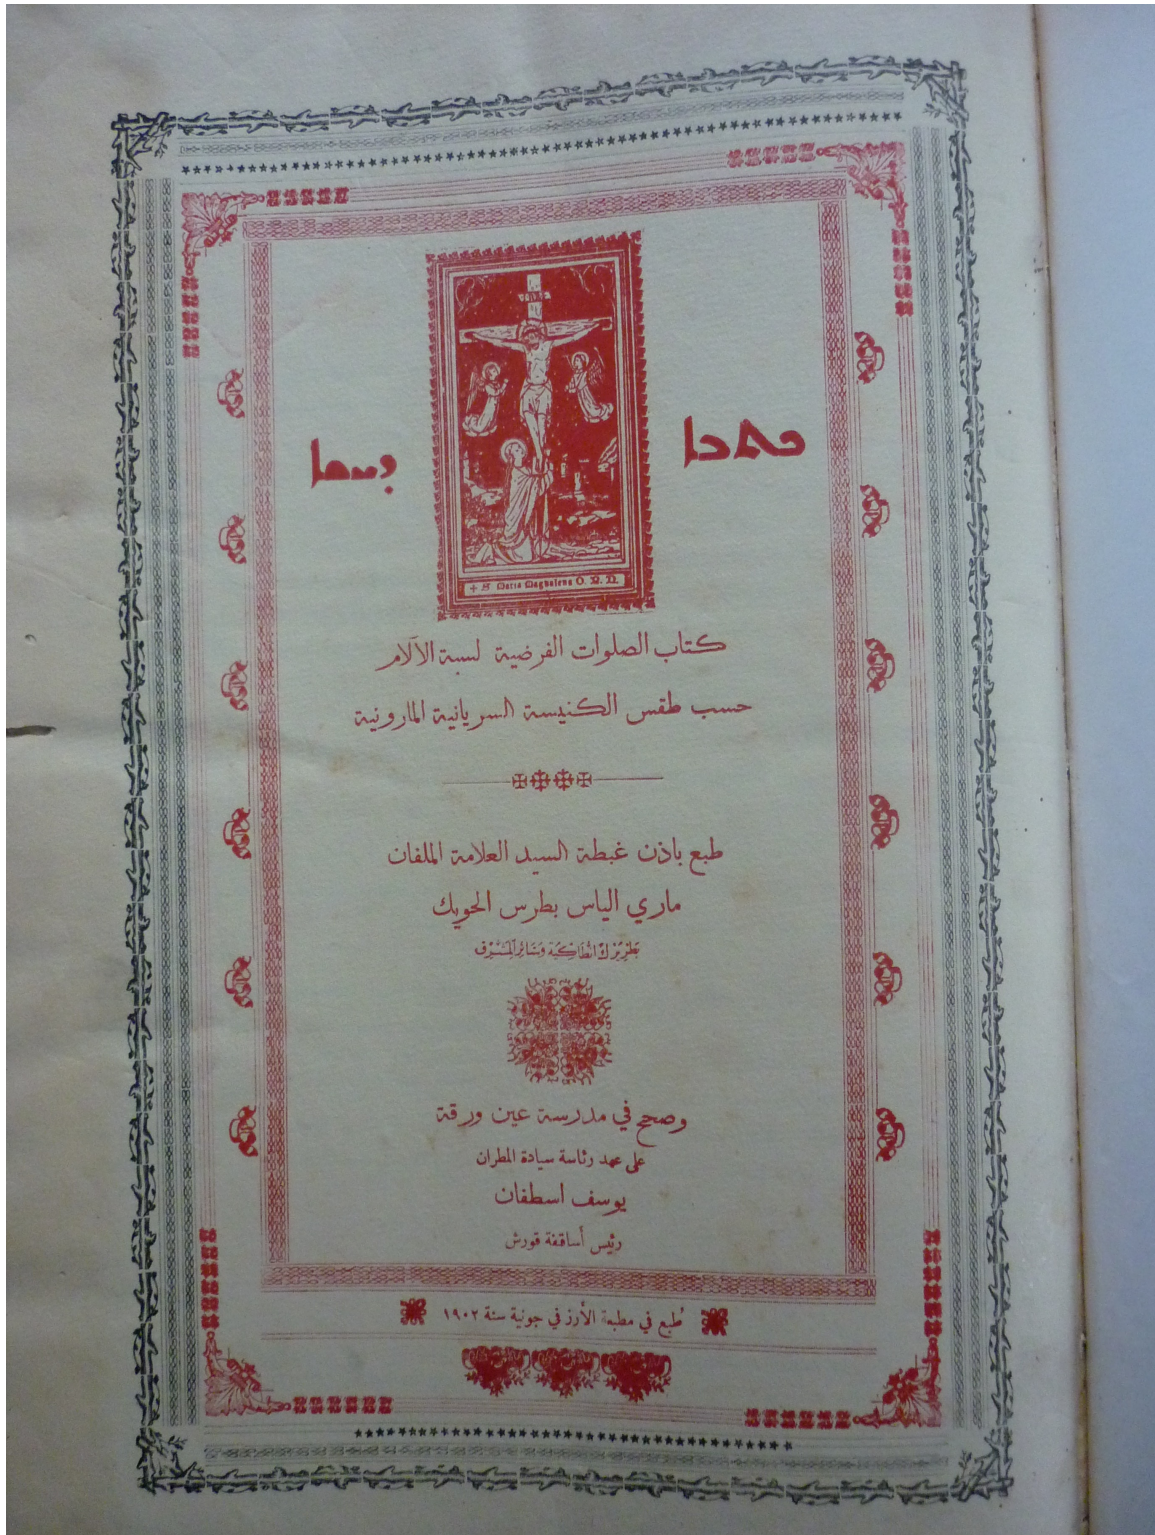 ܟܬܒܐ ܕܚܫܐ
+ S Maria Magdalena O. P. N.
كتاب الصلوات الفرضية لسبة الآلام
حسب طقس الكنيسة السريانية المارونية
طبع باذن غبطة السيد العلامة الملفان
ماري الياس بطرس الحويك
بَطْرِيَرْك انْطَاكِيَة وَسَائِر المَشْرِق
وصحح في مدرسة عين ورقة
على عهد رئاسة سيادة المطران
يوسف اسطفان
رئيس أساقفة قورش
طُبع في مطبعة الأَرز في جونية سنة ١٩٠٢